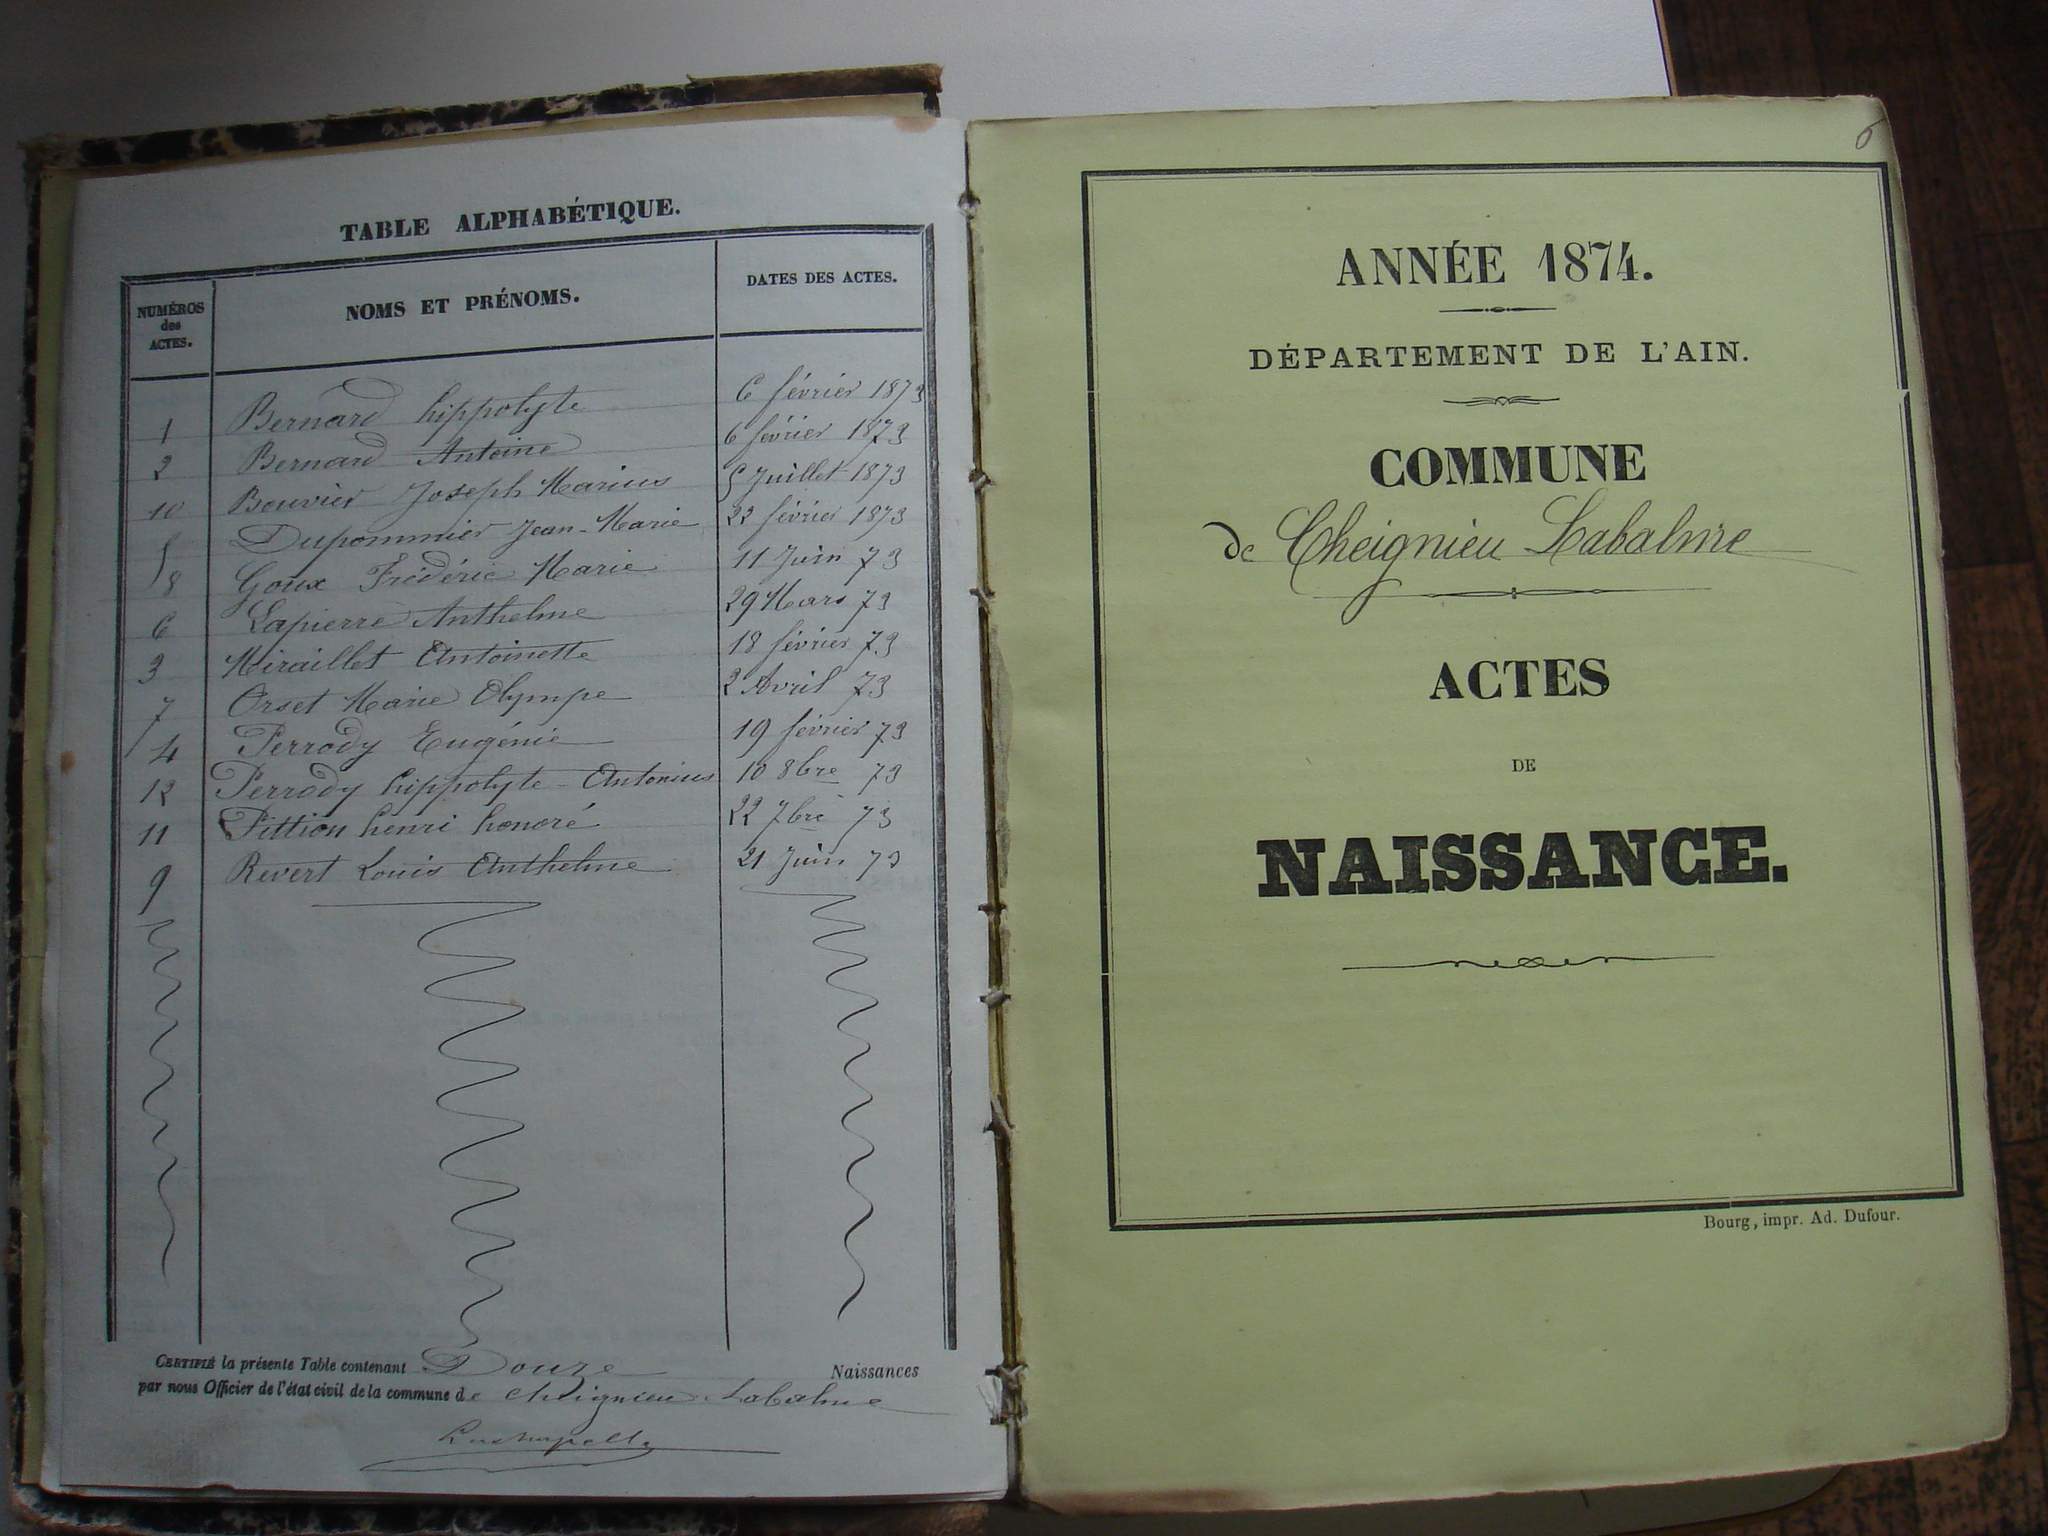 TABLE ALPHABÉTIQUE.
NUMÉROS des ACTES. NOMS ET PRÉNOMS. DATES DES ACTES.
1 Bernard hippolyte 6 février 1873
2 Bernard Antoine 6 février 1873
10 Bouvier Joseph Marius 5 Juillet 1873
5 Dupommier Jean-Marie 22 février 1873
8 Goux Frédéric Marie 11 Juin 73
6 Lapierre Anthelme 29 Mars 73
3 Miraillet Antoinette 18 février 73
7 Orset Marie Olympe 2 Avril 73
4 Perrody Eugénie 19 février 73
12 Perrody hippolyte-Antonius 10 8bre 73
11 Pittion henri honoré 22 7bre 73
9 Revert Louis Anthelme 21 Juin 73
CERTIFIÉ la présente Table contenant Douze Naissances
par nous Officier de l'état civil de la commune de Cheignieu Labalme
6
ANNÉE 1874.
DÉPARTEMENT DE L'AIN.
COMMUNE
de Cheignieu Labalme
ACTES
DE
NAISSANCE.
Bourg, impr. Ad. Dufour.